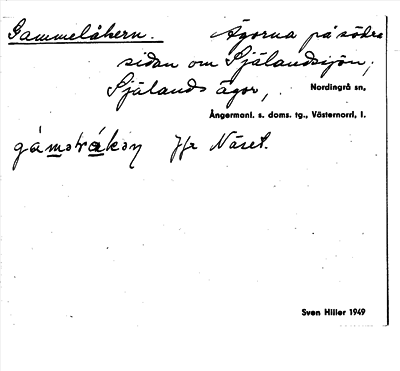 Gammelåkern. Ägorna på södra
sidan om Själandsjön,
Själands ägor, Nordingrå sn,
Ångermanl. s. doms. tg., Västernorrl. l.
Jfr Näset.
Sven Hiller 1949